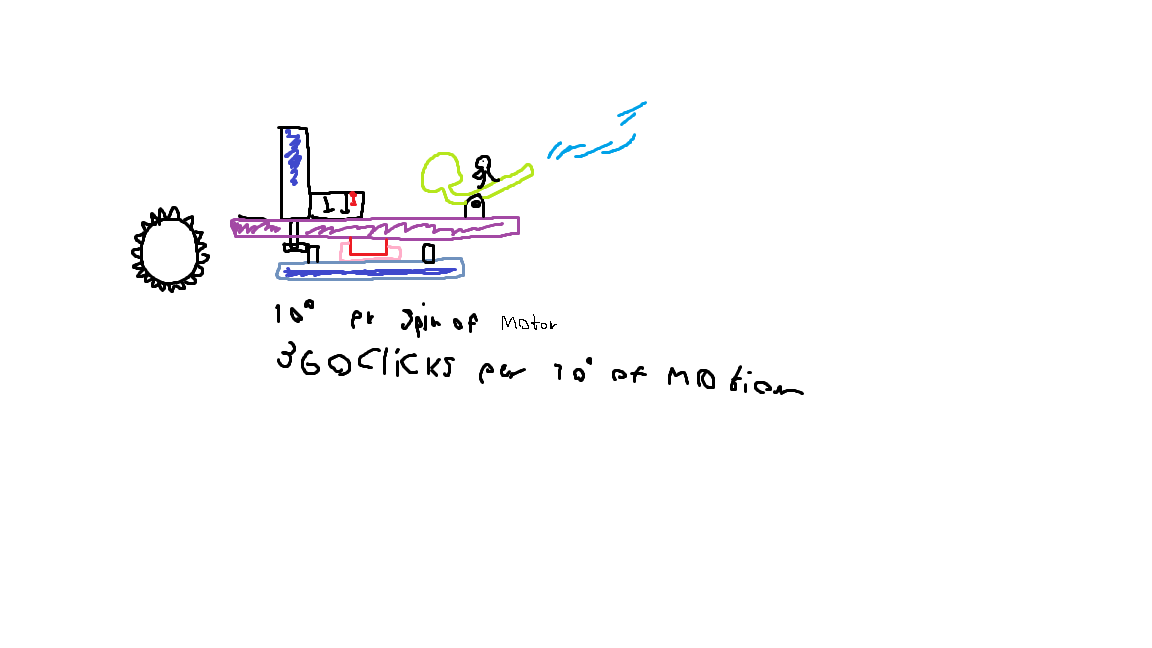 10° pr spin of Motor
360 Clicks per 10° of Motion